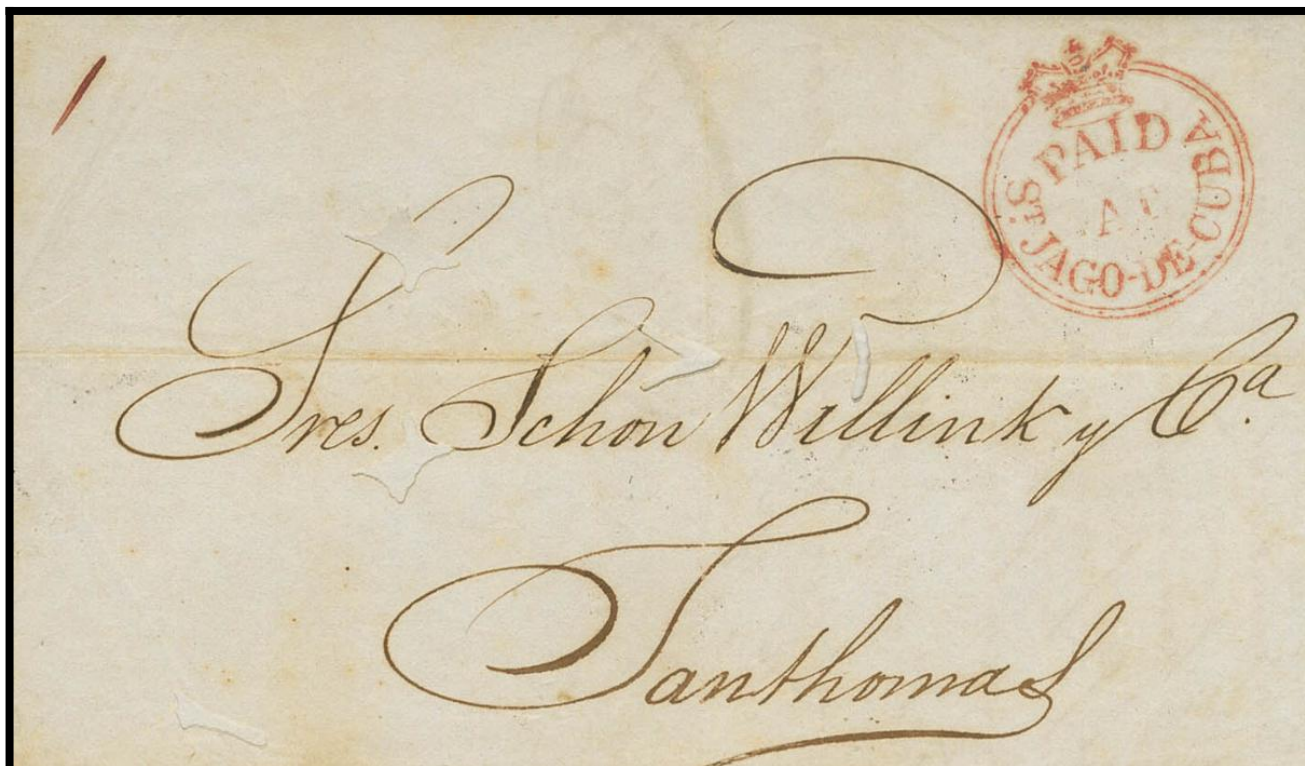 1
PAID
AT
ST. JAGO-DE-CUBA
Sres. Schon Willink y Ca.
Santhomas